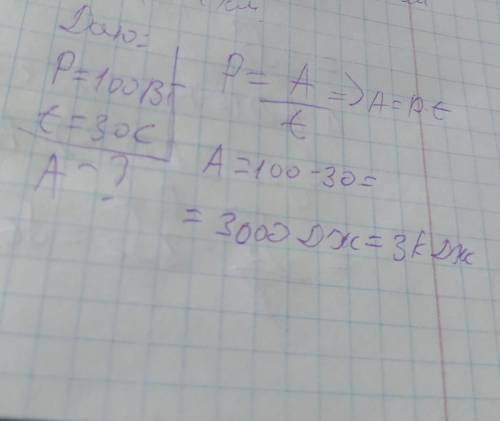 Дано:
P=100Вт
t=30с
A - ?
P = A/t => A = p t
A = 100 - 30 =
= 3000 Дж = 3кДж